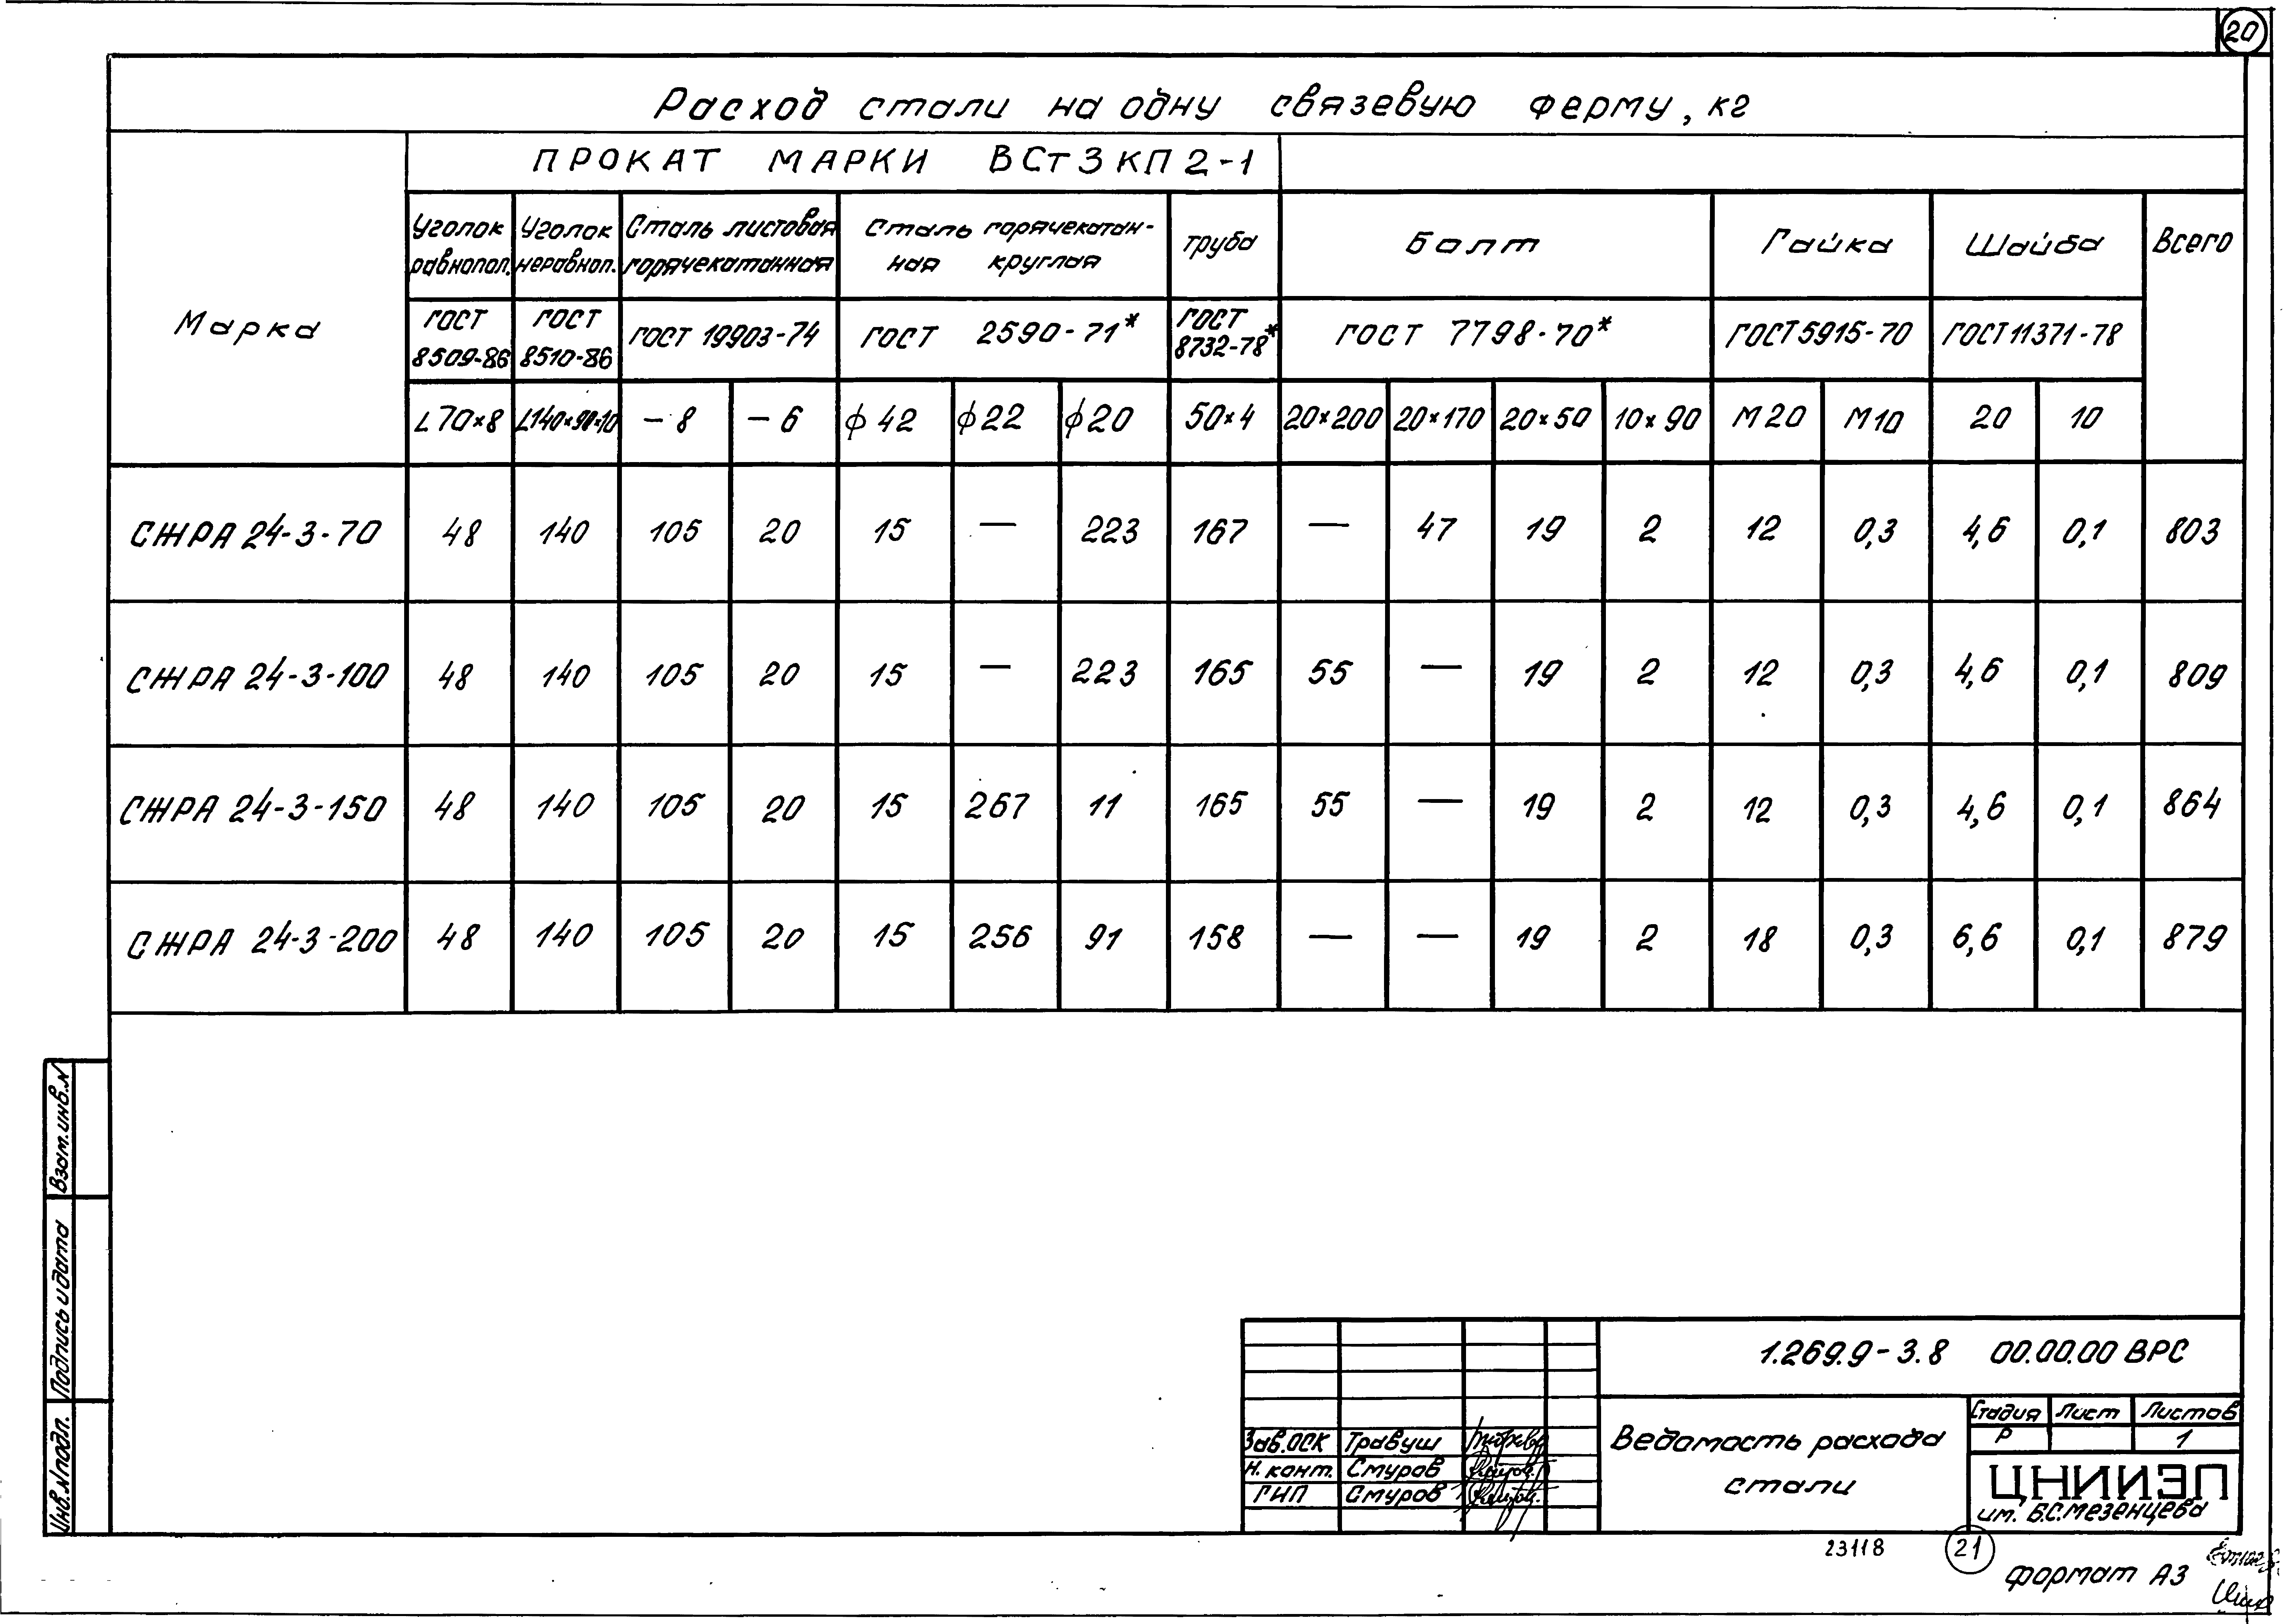 20
Расход стали на одну связевую ферму, кг
Марка
ПРОКАТ МАРКИ ВСт3КП2-1
Уголок равнопол.
Уголок неравноп.
Сталь листовая горячекатанная
Сталь горячекатан-
ная круглая
труба
Болт
Гайка
Шайба
Всего
ГОСТ 8509-86
ГОСТ 8510-86
ГОСТ 19903-74
ГОСТ 2590-71*
ГОСТ 8732-78*
ГОСТ 7798-70*
ГОСТ 5915-70
ГОСТ 11371-78
∟70×8 ∟140×90×10 -8 -6 ϕ42 ϕ22 ϕ20 50×4 20×200 20×170 20×50 10×90 М20 М10 20 10
СЖРА 24-3-70 48 140 105 20 15 — 223 167 — 47 19 2 12 0,3 4,6 0,1 803
СЖРА 24-3-100 48 140 105 20 15 — 223 165 55 — 19 2 12 0,3 4,6 0,1 809
СЖРА 24-3-150 48 140 105 20 15 267 11 165 55 — 19 2 12 0,3 4,6 0,1 864
СЖРА 24-3-200 48 140 105 20 15 256 91 158 — — 19 2 18 0,3 6,6 0,1 879
Взам.инв.N
Подпись и дата
Инв.N подл.
1.269.9-3.8 00.00.00 ВРС
Зав.ОСК Травуш
Н. конт. Смуров
ГИП Смуров
Ведомость расхода
стали
Стадия Лист Листов
Р 1
ЦНИИЭП
им. Б.С.Мезенцева
23118
21
формат А3